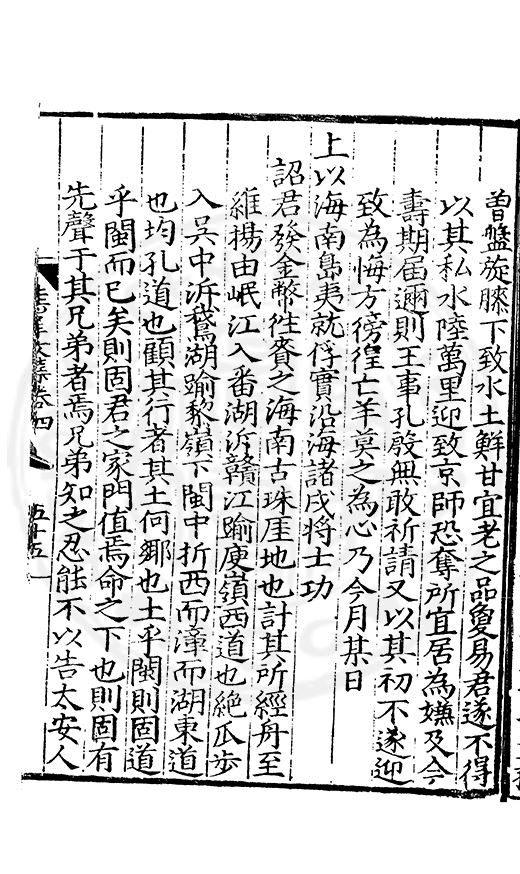 曽盤旋膝下致水土鮮甘宜老之品夐易君遂不得
以其私水陸萬里迎致京師恐奪所宜居為嫌及今
壽期届邇則王事孔殷無敢祈請又以其初不遂迎
致為悔方徬徨亡羊莫之為心乃今月某日
上以海南島夷就俘實沿海諸戍將士功
詔君發金幣徃賚之海南古珠厓地也計其所經舟至
維揚由岷江入番湖泝贛江踰庾嶺西道也絶瓜步
入吴中泝鵞湖踰黎嶺下閩中折西而漳而湖東道
也均孔道也顧其行者其土何鄉也土乎閩則固道
乎閩而已矣則固君之家門值焉命之下也則固有
先聲于其兄弟者焉兄弟知之忍能不以告太安人
卷四
五十五